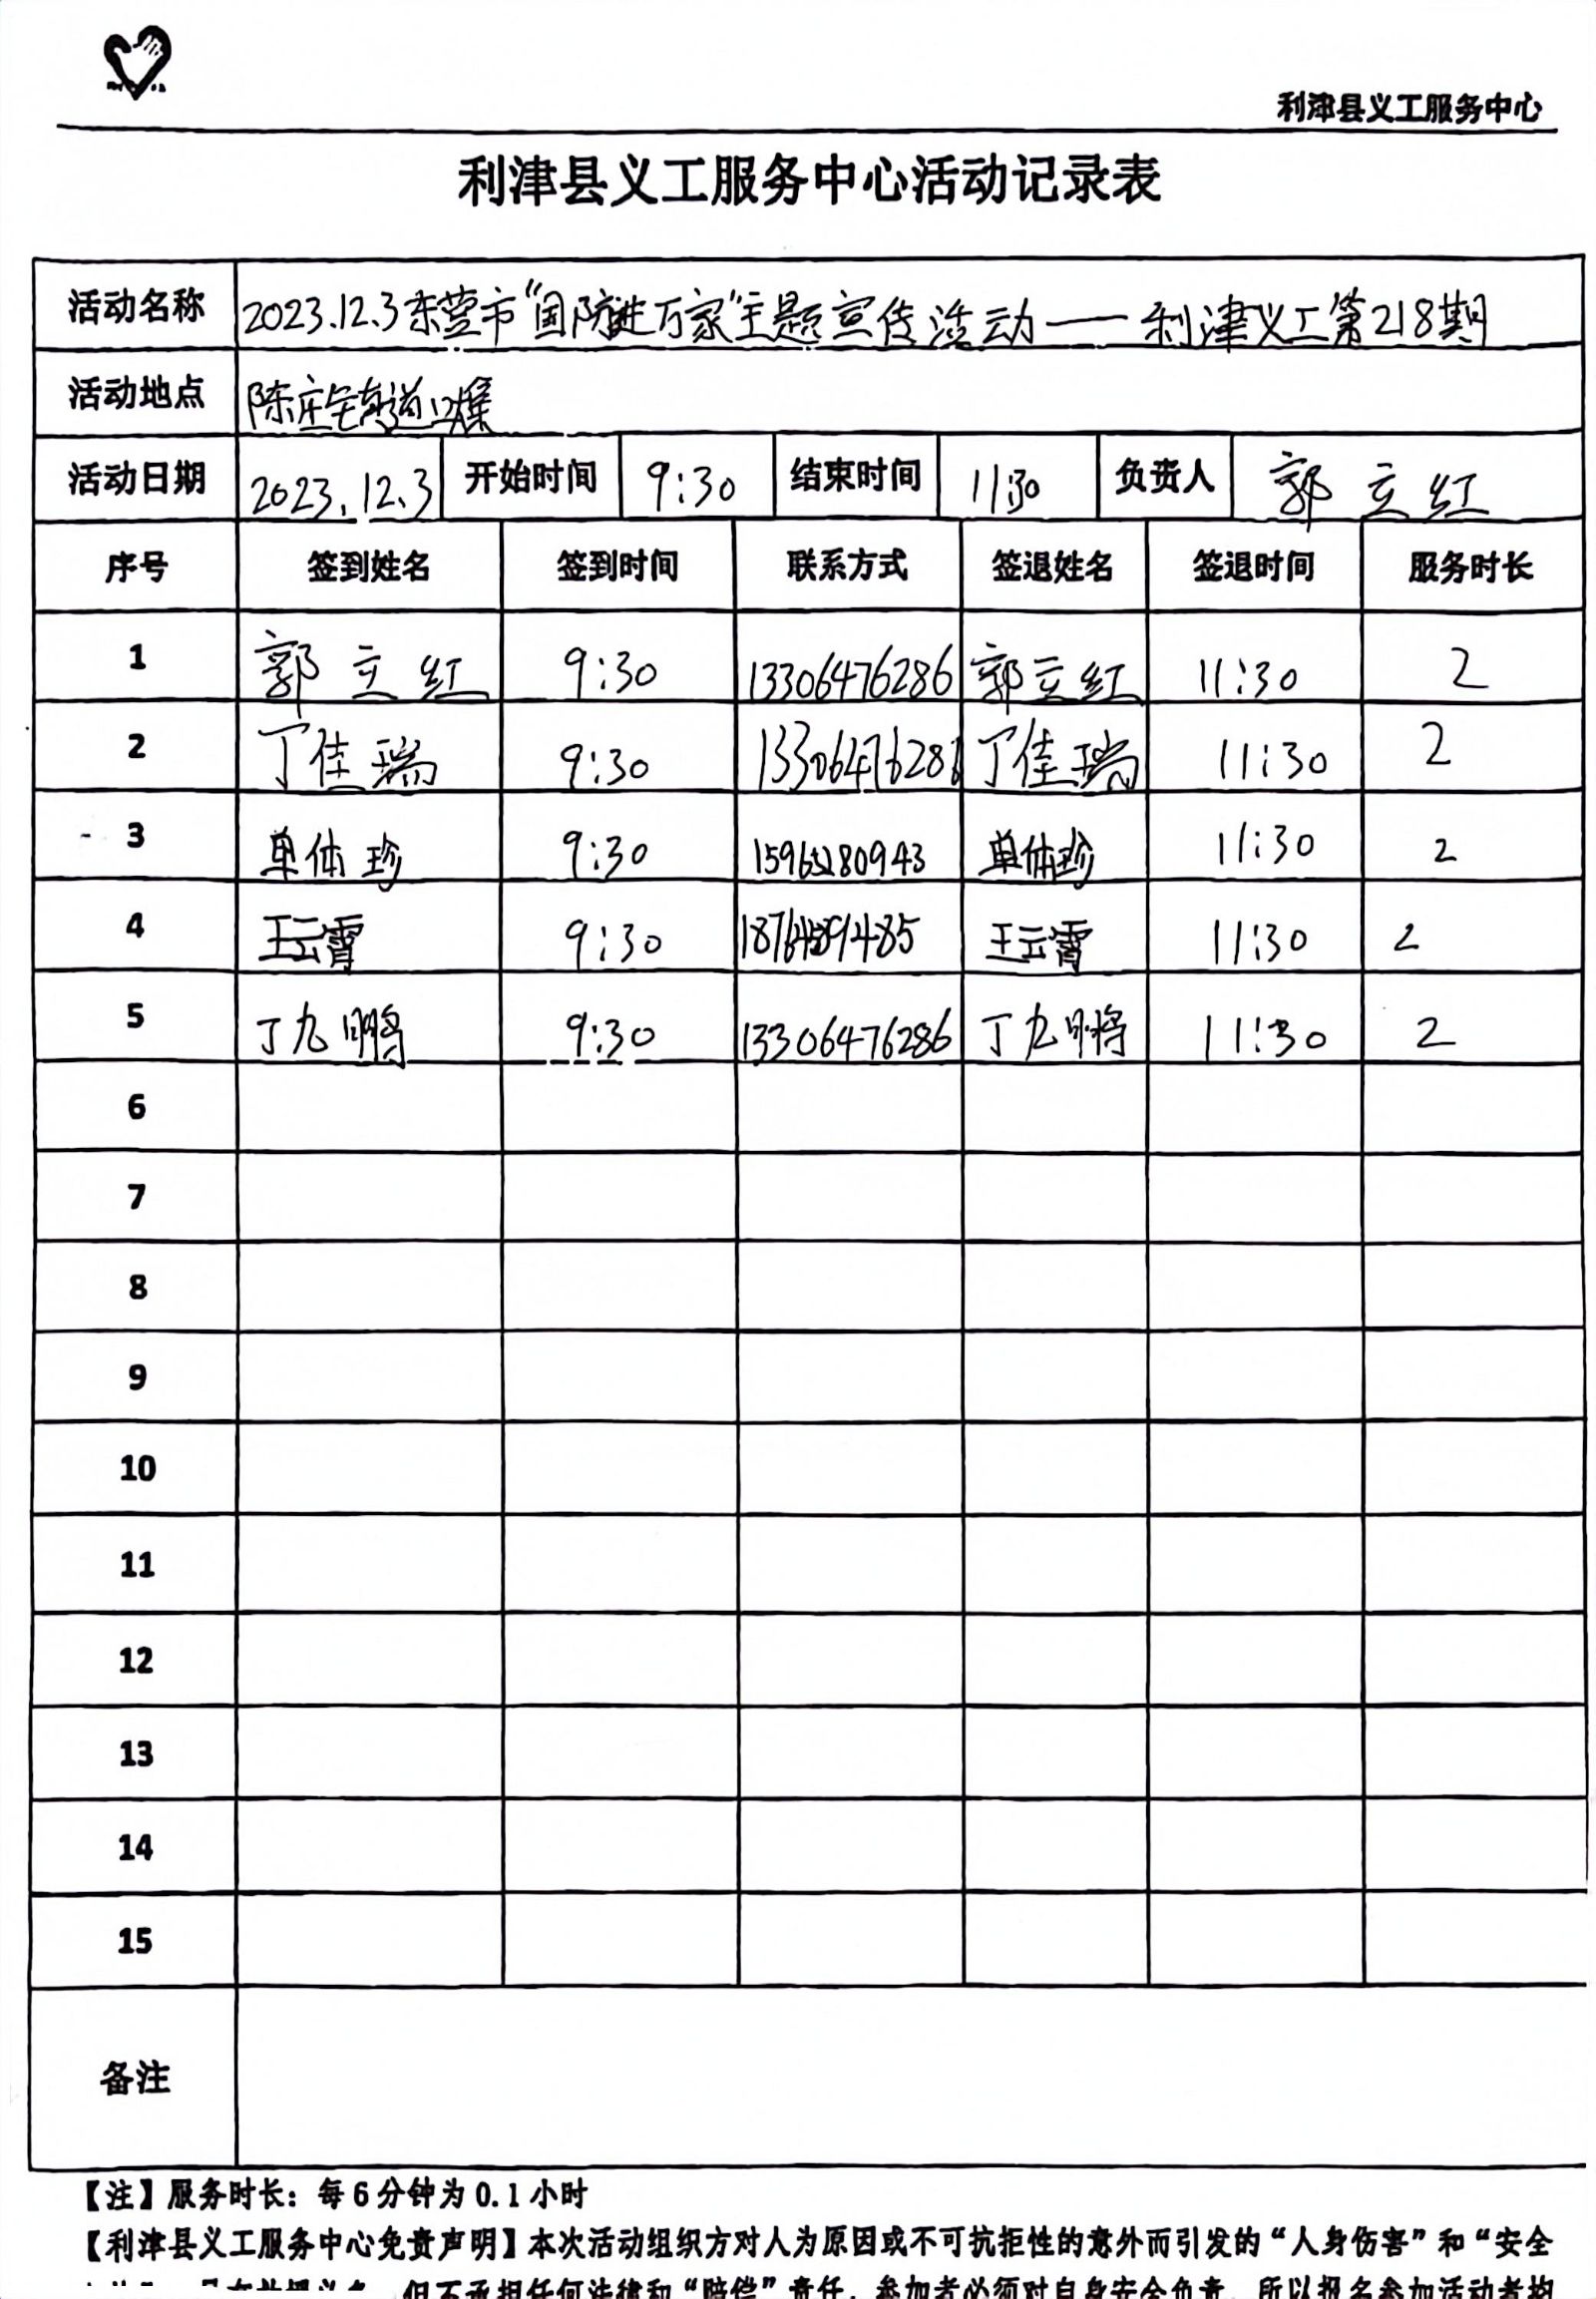 利津县义工服务中心
利津县义工服务中心活动记录表
活动名称 2023.12.3东营市“国防进万家”主题宣传活动——利津义工第218期
活动地点 陈庄
活动日期 2023.12.3 开始时间 9:30 结束时间 11:30 负责人 郭立红
序号 签到姓名 签到时间 联系方式 签退姓名 签退时间 服务时长
1 郭立红 9:30 13306476286 郭立红 11:30 2
2 丁佳瑞 9:30 丁佳瑞 11:30 2
3 单体珍 9:30 单体珍 11:30 2
4 王云霄 9:30 王云霄 11:30 2
5 丁九 9:30 13306476286 丁九 11:30 2
6
7
8
9
10
11
12
13
14
15
备注
【注】服务时长：每6分钟为0.1小时
【利津县义工服务中心免责声明】本次活动组织方对人为原因或不可抗拒性的意外而引发的“人身伤害”和“安全
但不承担任何法律和“赔偿”责任，参加者必须对自身安全负责，所以报名参加活动者均